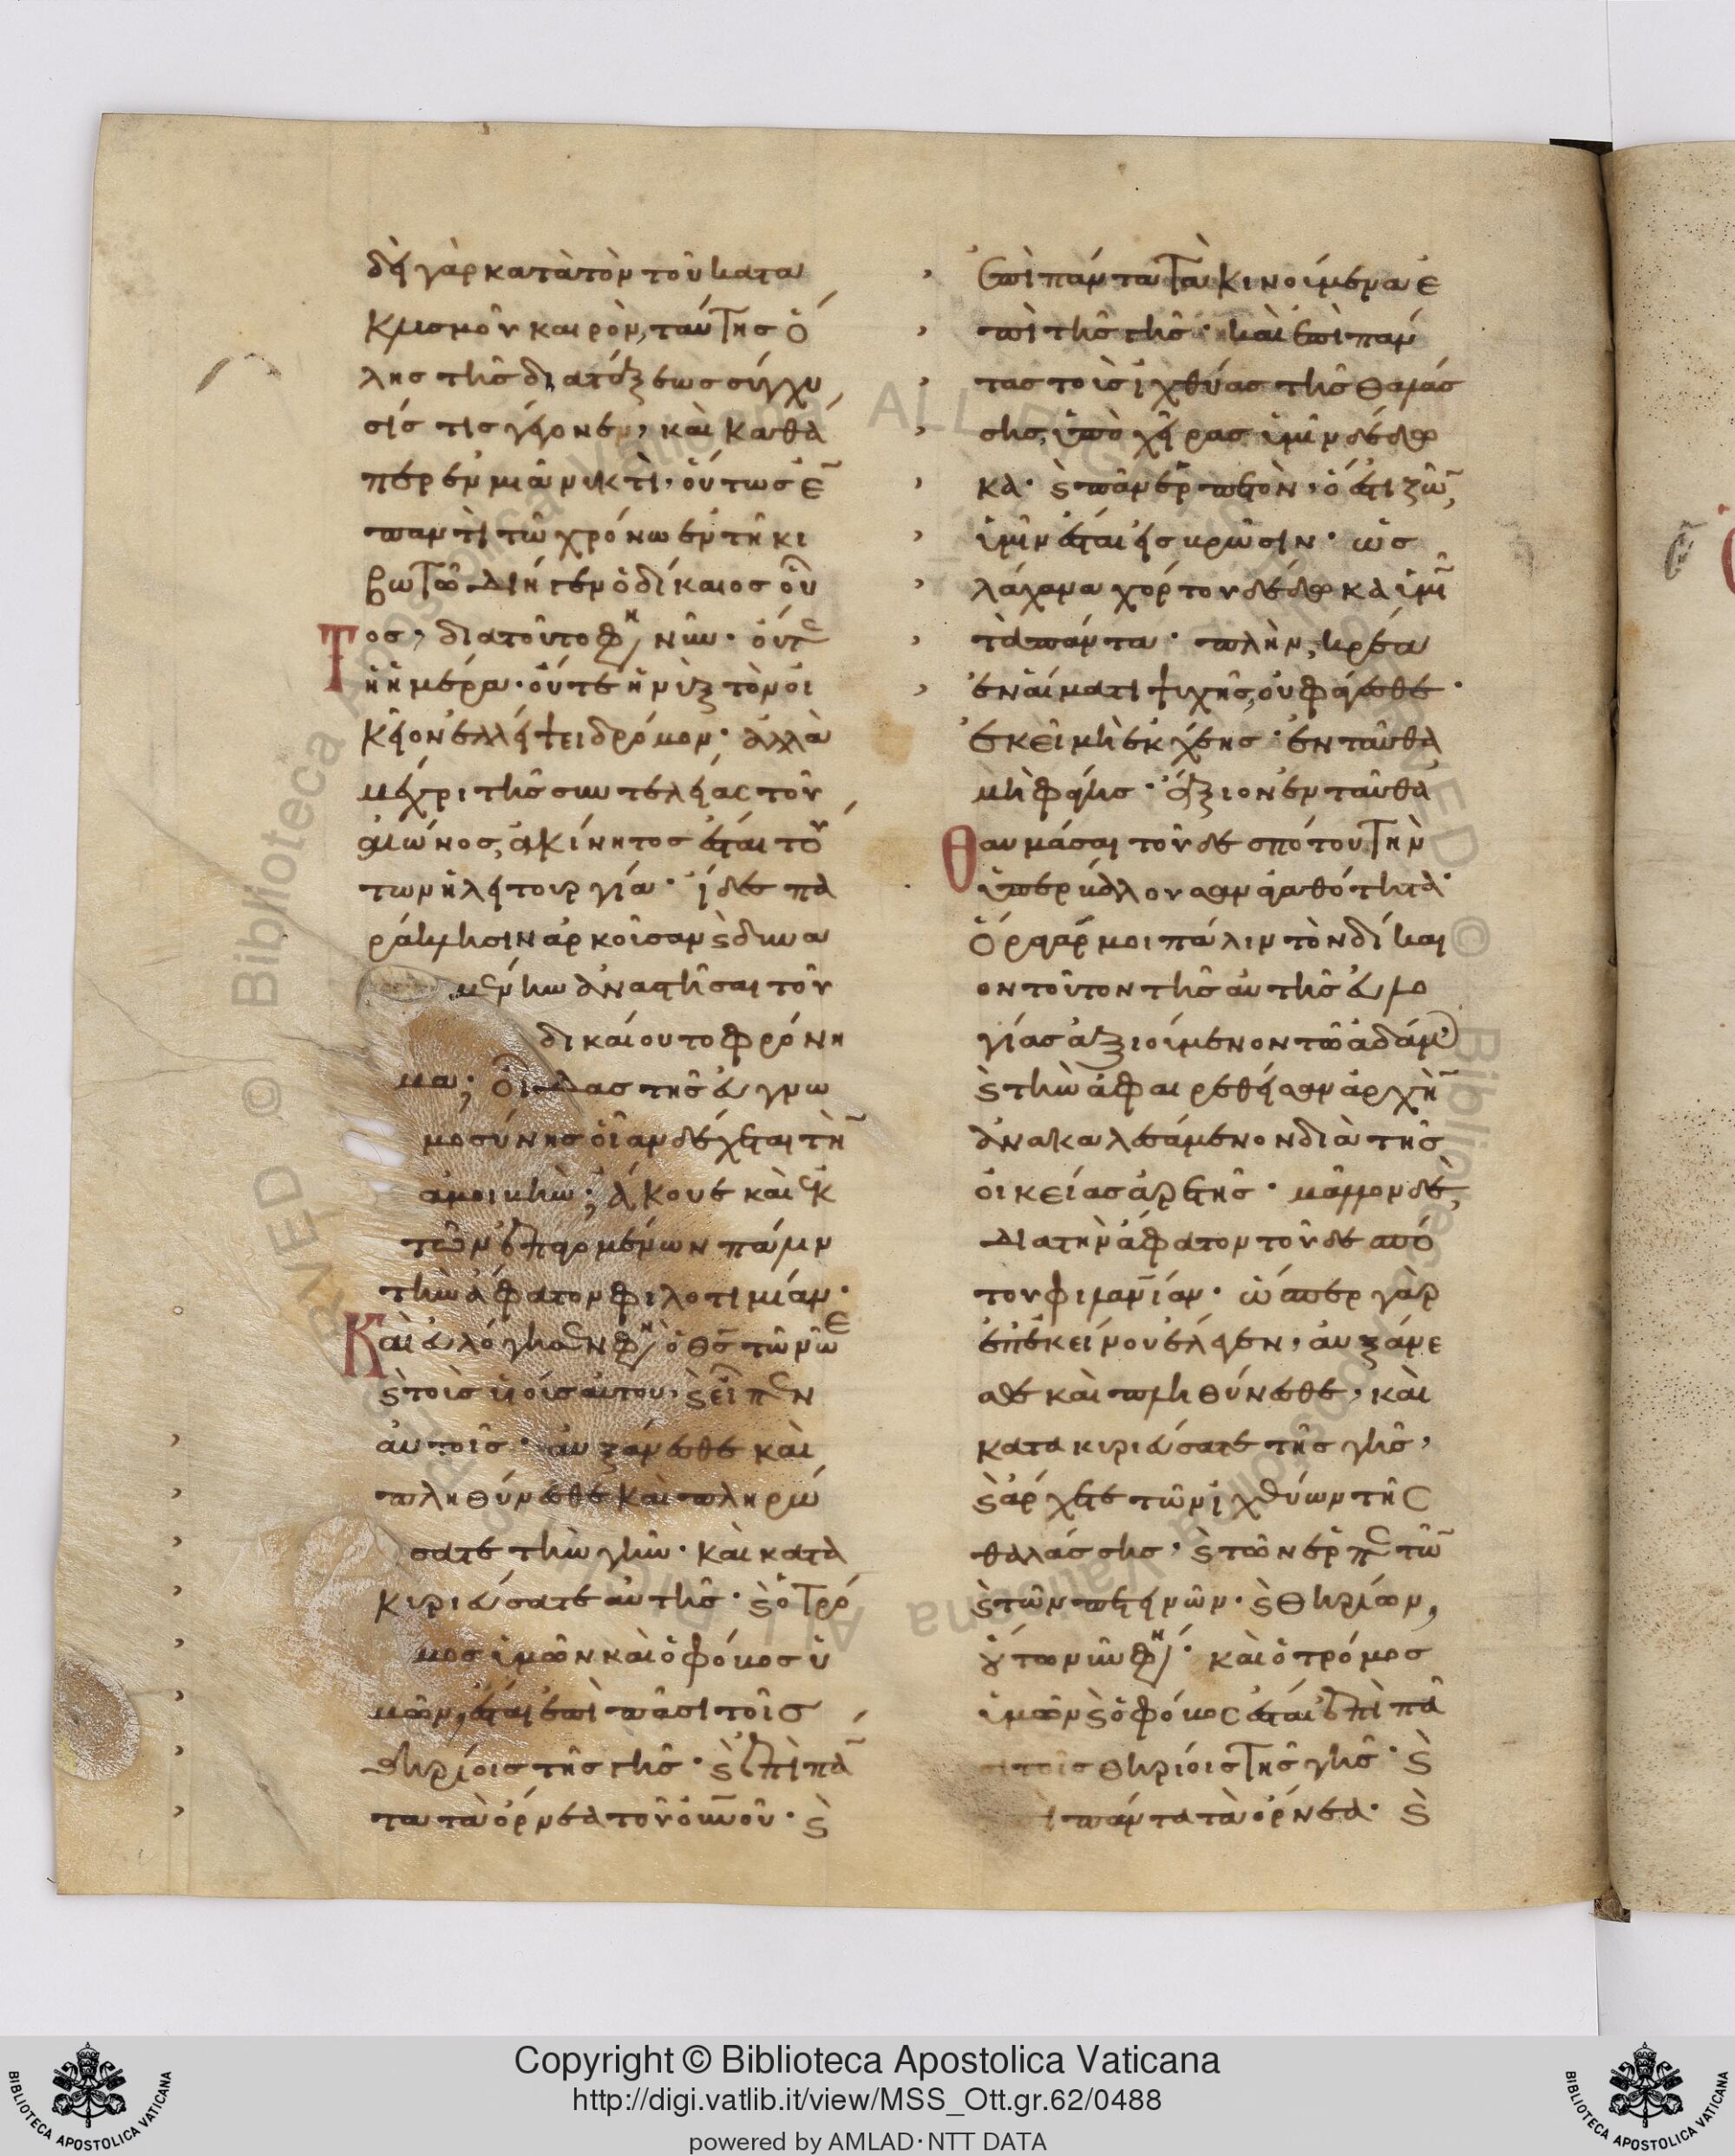 δὴ γὰρ κατὰ τὸν τοῦ κατα
κλυσμοῦ καιρὸν, ταύτης ὅ
λης τῆς διατάξεως σύγχυ
σίς τις γέγονεν, καὶ καθά
περ ἐν μιᾶ νυκτὶ, οὕτως ἐ̅
παντὶ τῶ χρόνω ἐν τῆ κι
βωτῶ διῆγεν ὁ δίκαιος οὗ
τος, διατοῦτο φη νῦν· οὔτε
ἡ ἡμέρα· οὔτε ἡ νὺξ τὸν οἰ
κεῖον ἐλλείψει δρόμον· ἀλλὰ
μέχρι τῆς συντελείας τοῦ
αἰῶνος, ἀκίνητος ἔσται τού
των ἡ λειτουργία· ἴδε πα
ράκλησιν ἀρκοῦσαν ϛ δυνα
μένην ἀναστῆσαι τοῦ
δικαίου τὸ φρόνη
μα; οἶδας τῆς εὐγνω
μοσύνης οἵαν δέχεται τὴ̅
ἀμοιβὴν; ἄκουε καὶ ἐκ
τῶν ἐπαγομένων πάλιν
τὴν ἄφατον φιλοτιμίαν·
Καὶ εὐλόγησεν φη ὁ θς̅ τῶ νῶε
ϛ τοῖς υἱοῖς αὐτου, ϛ εἶπεν
αὐτοῖς· αὐξάνεσθε καὶ
πληθύνεσθε καὶ πληρώ
σατε τὴν γῆν· καὶ κατα
κυριεύσατε αὐτῆς· ϛ ὁ τρό
μος ὑμῶν καὶ ὁ φόβος ὑ
μῶν, ἔσται ἐπὶ πᾶσι τοῖς
θηρίοις τῆς γῆς· ϛ ἐπὶ πά̅
τα τὰ ὄρνεα τοῦ οὐνου· ϛ
ἐπὶ πάντα τὰ κινούμενα ἐ
πὶ τῆς γῆς· καὶ ἐπὶ πάν
τας τοὺς ἰχθύας τῆς θαλάσ
σης, ὑπὸ χεῖρας ὑμῖν δέδω
κα· ϛ πᾶν ἑρπετὸν, ὅ ἐστι ζῶ̅,
ὑμῖν ἔσται εἰς βρῶσιν· ὡς
λάχανα χόρτου δέδωκα ὑμῖ̅
τὰ πάντα· πλὴν, κρέα
ἐν αἵματι ψυχῆς, οὐ φάγεσθε·
ἐκεῖ μὴ ἐκχέης· ἐνταῦθα
μὴ φάγης· ἄξιον ἐνταῦθα
Θαυμάσαι τοῦ δεσπότου τὴν
ὑπερβάλλουσαν ἀγαθότητα·
Ὅρα γάρ μοι πάλιν τὸν δίκαι
ον τοῦτον τῆς αὐτῆς εὐλο
γίας ἀξιούμενον τῶ ἀδάμ,
ϛ τὴν ἀφαιρεθεῖσαν ἀρχὴ̅
ἀνακαλεσάμενον διὰ τῆς
οἰκείας ἀρετῆς· μᾶλλον δὲ,
διὰ τὴν ἄφατον τοῦ δεσπό
του φιλαν̅ίαν· ὥσπερ γὰρ
ἐπ' ἐκείνου ἔλεγεν, αὐξάνε
σθε καὶ πληθύνεσθε, καὶ
κατακυριεύσατε τῆς γῆς,
ϛ ἄρχετε τῶν ἰχθύων τῆς
θαλάσσης, ϛ τῶν ἑρπετῶ̅
ϛ τῶν πετεινῶν· ϛ θηρίων,
οὕτω νῦν φη· καὶ ὁ τρόμος
ὑμῶν ϛ ὁ φόβος ἔσται ἐπὶ πᾶ
σι τοῖς θηρίοις τῆς γῆς· ϛ
ἐπὶ πάντα τὰ ὄρνεα· ϛ
Copyright © Biblioteca Apostolica Vaticana
http://digi.vatlib.it/view/MSS_Ott.gr.62/0488
powered by AMLAD·NTT DATA